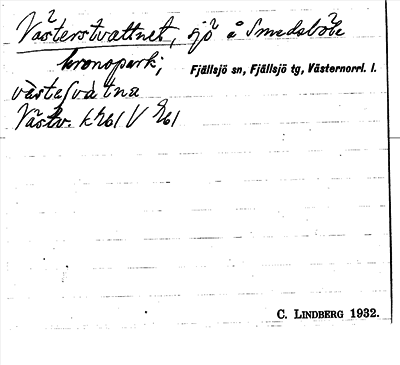 Västerstvattnet, sjö å Smedsböle
kronopark;
Fjällsjö sn, Fjällsjö tg, Västernorrl. l.
Västv.
C. LINDBERG 1932.